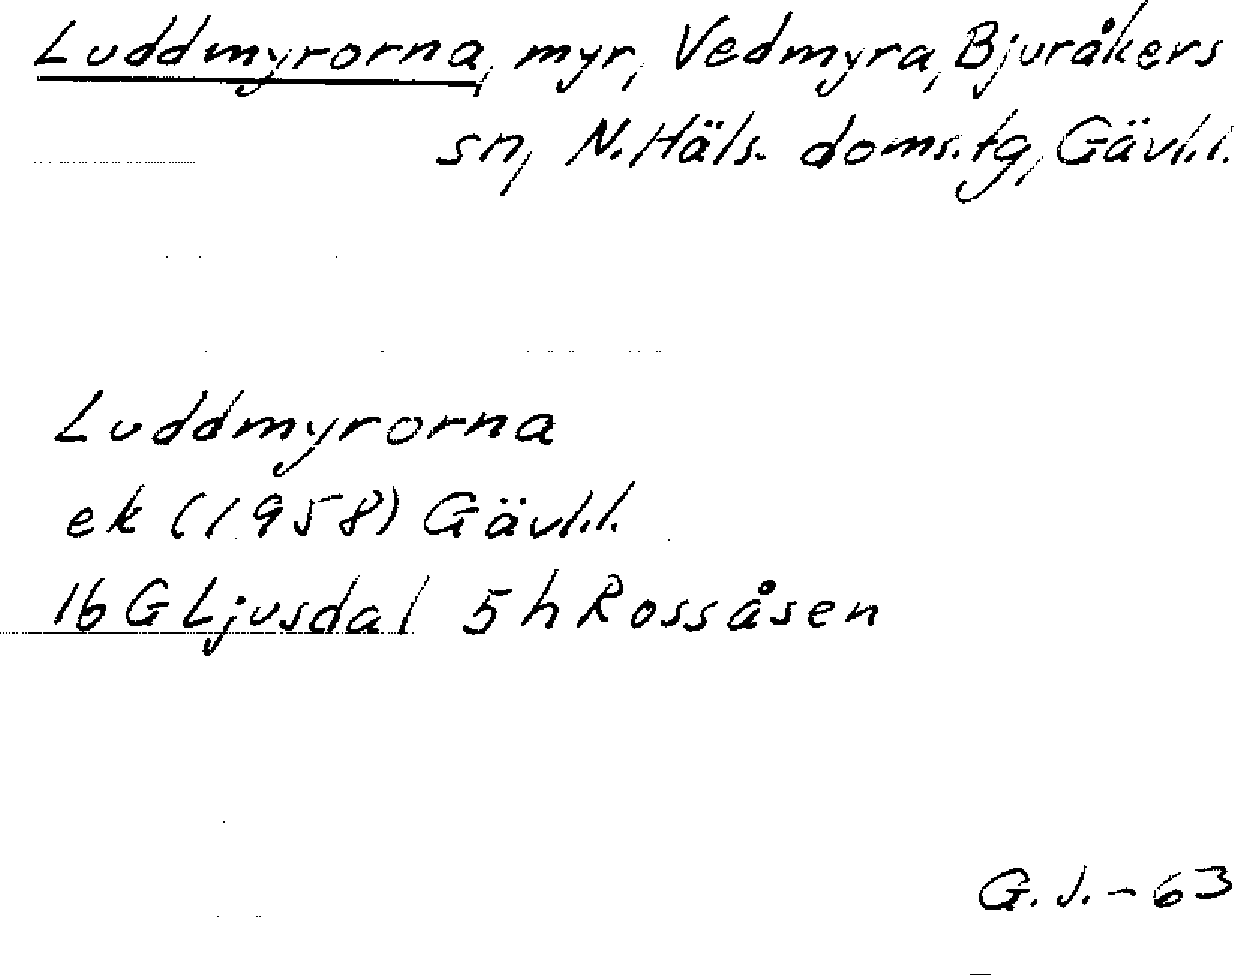 Luddmyrorna, myr, Vedmyra, Bjuråkers
sn, N. Häls. doms.tg, Gävl.l.
Luddmyrorna
ek (1958) Gävl.l.
16 G Ljusdal 5 h Rossåsen
G.J.-63